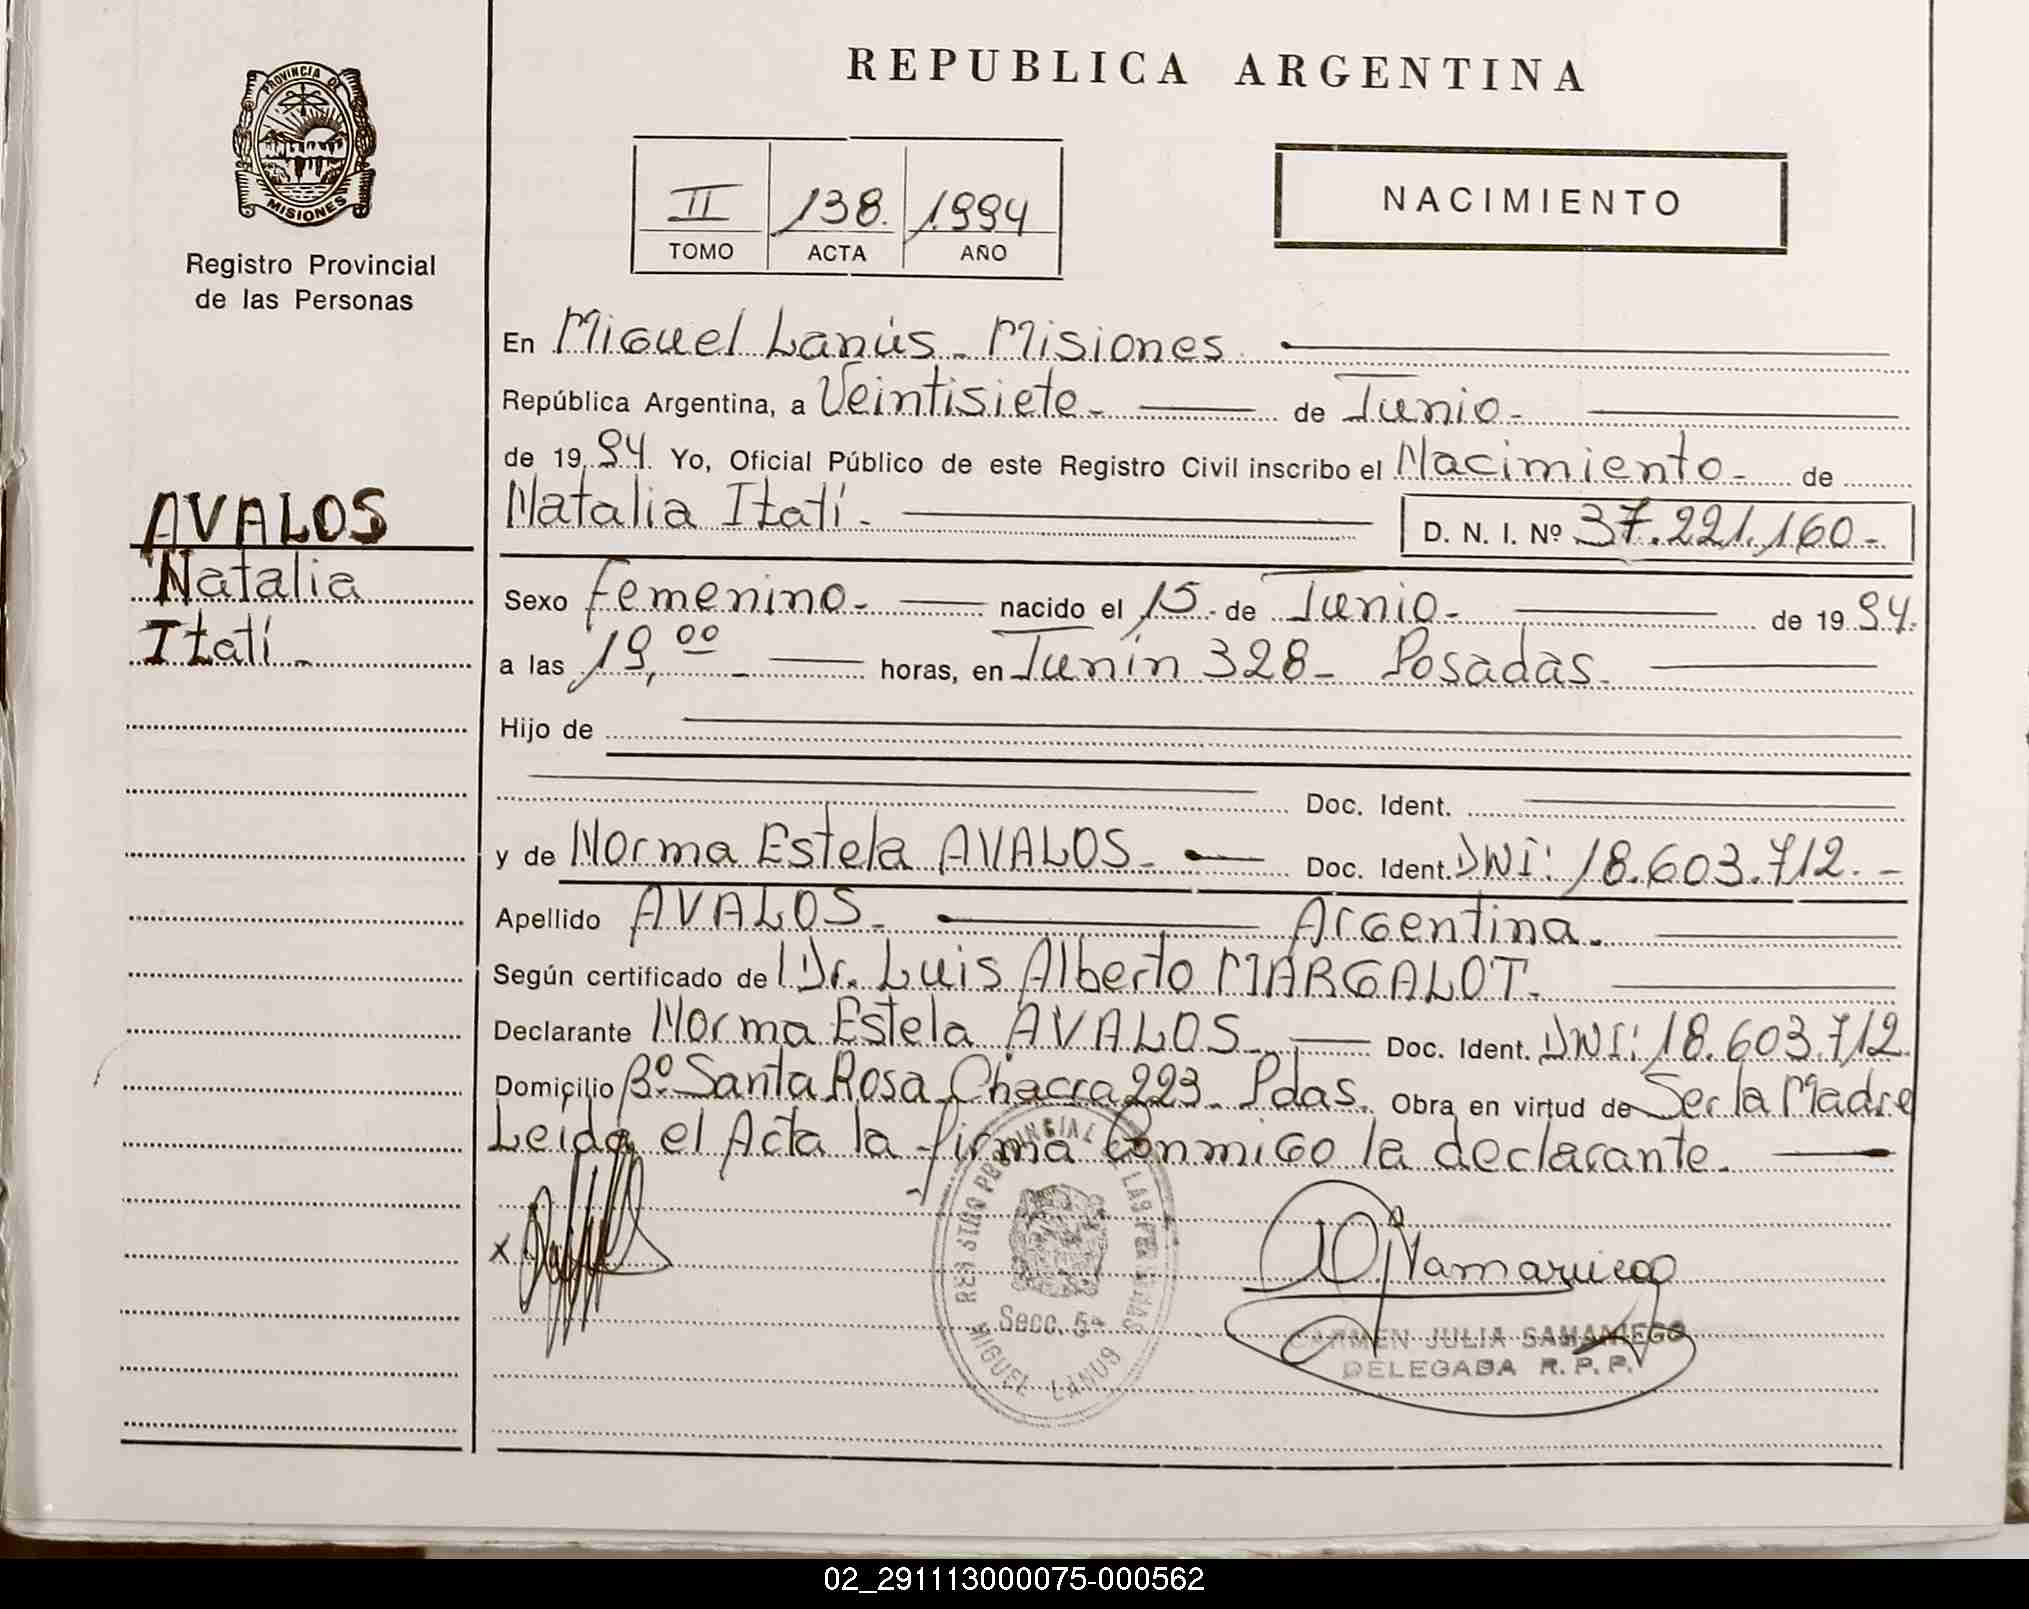 REPUBLICA ARGENTINA
PROVINCIA DE MISIONES
Registro Provincial
de las Personas
II 138. 1994
TOMO ACTA AÑO
NACIMIENTO
AVALOS
Natalia
Itatí.
En Miguel Lanús. Misiones
República Argentina, a Veintisiete. de Junio.
de 19 94. Yo, Oficial Público de este Registro Civil inscribo el Nacimiento. de
Natalia Itatí. D. N. I. Nº 37.221.160.
Sexo Femenino. nacido el 15 de Junio. de 19 94.
a las 19,00 horas, en Junín 328. Posadas.
Hijo de
Doc. Ident.
y de Norma Estela AVALOS. Doc. Ident. DNI: 18.603.712.
Apellido AVALOS. Argentina.
Según certificado de Dr. Luis Alberto MARGALOT.
Declarante Norma Estela AVALOS. Doc. Ident. DNI: 18.603.712.
Domicilio Bº Santa Rosa Chacra 223. Pdas. Obra en virtud de Ser la Madre
Leida el Acta la firma conmigo la declarante.
x
REGISTRO PROVINCIAL DE LAS PERSONAS
Secc. 5ª
MIGUEL LANUS
CARMEN JULIA SAMANIEGO
DELEGADA R. P. P.
02_291113000075-000562